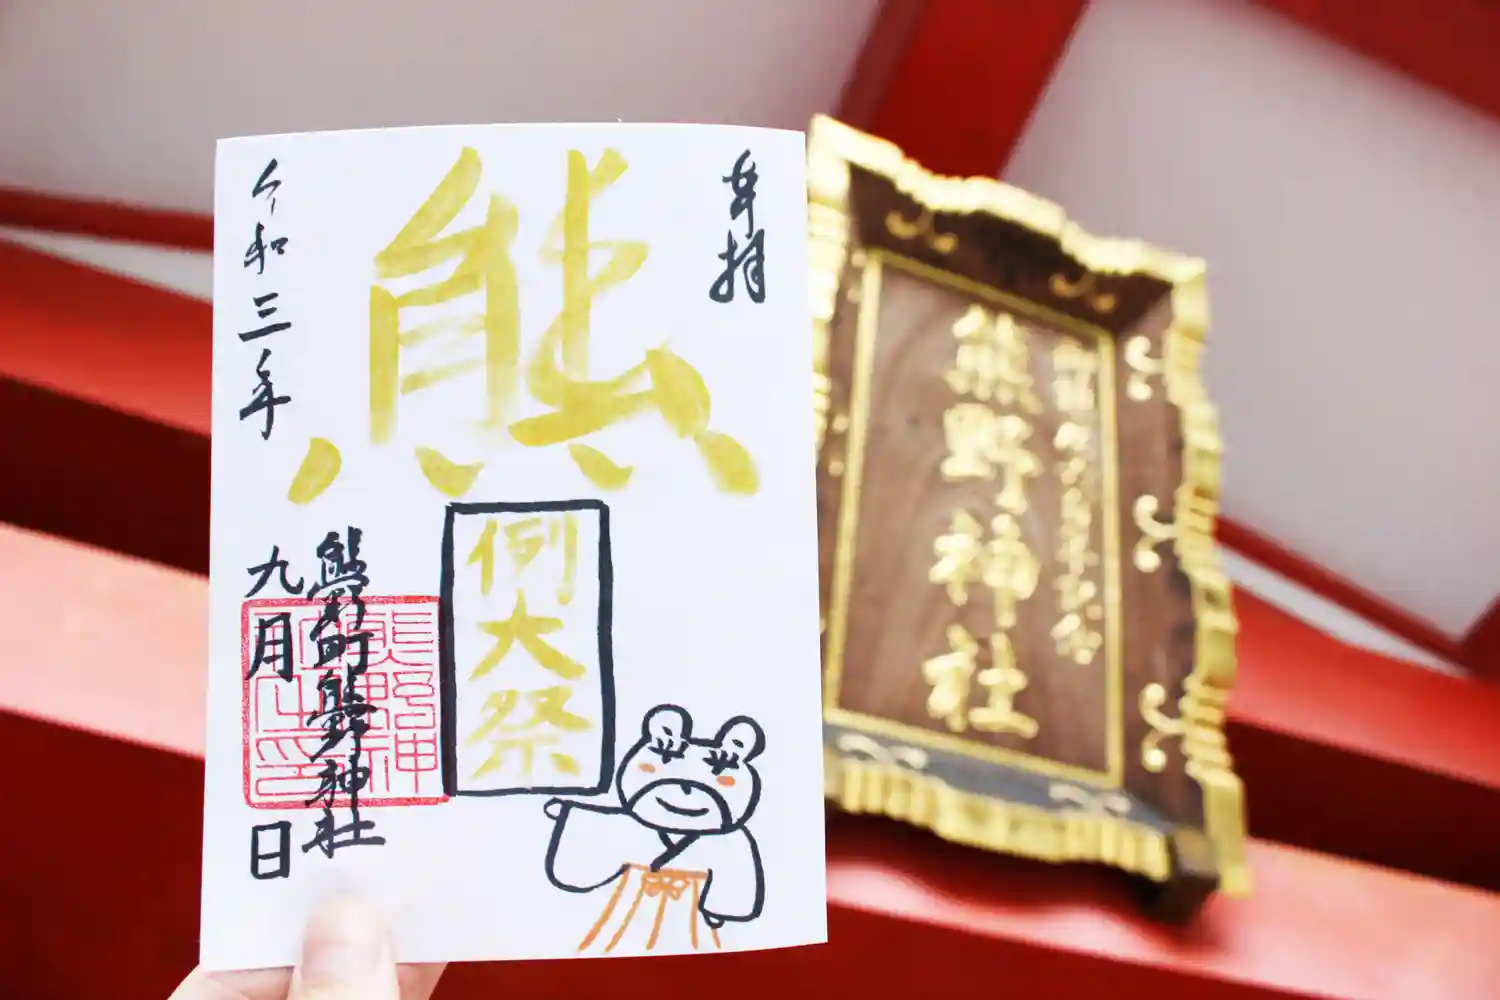 奉拝
熊
例大祭
熊野町熊野神社
令和三年
九月
日
熊野神社